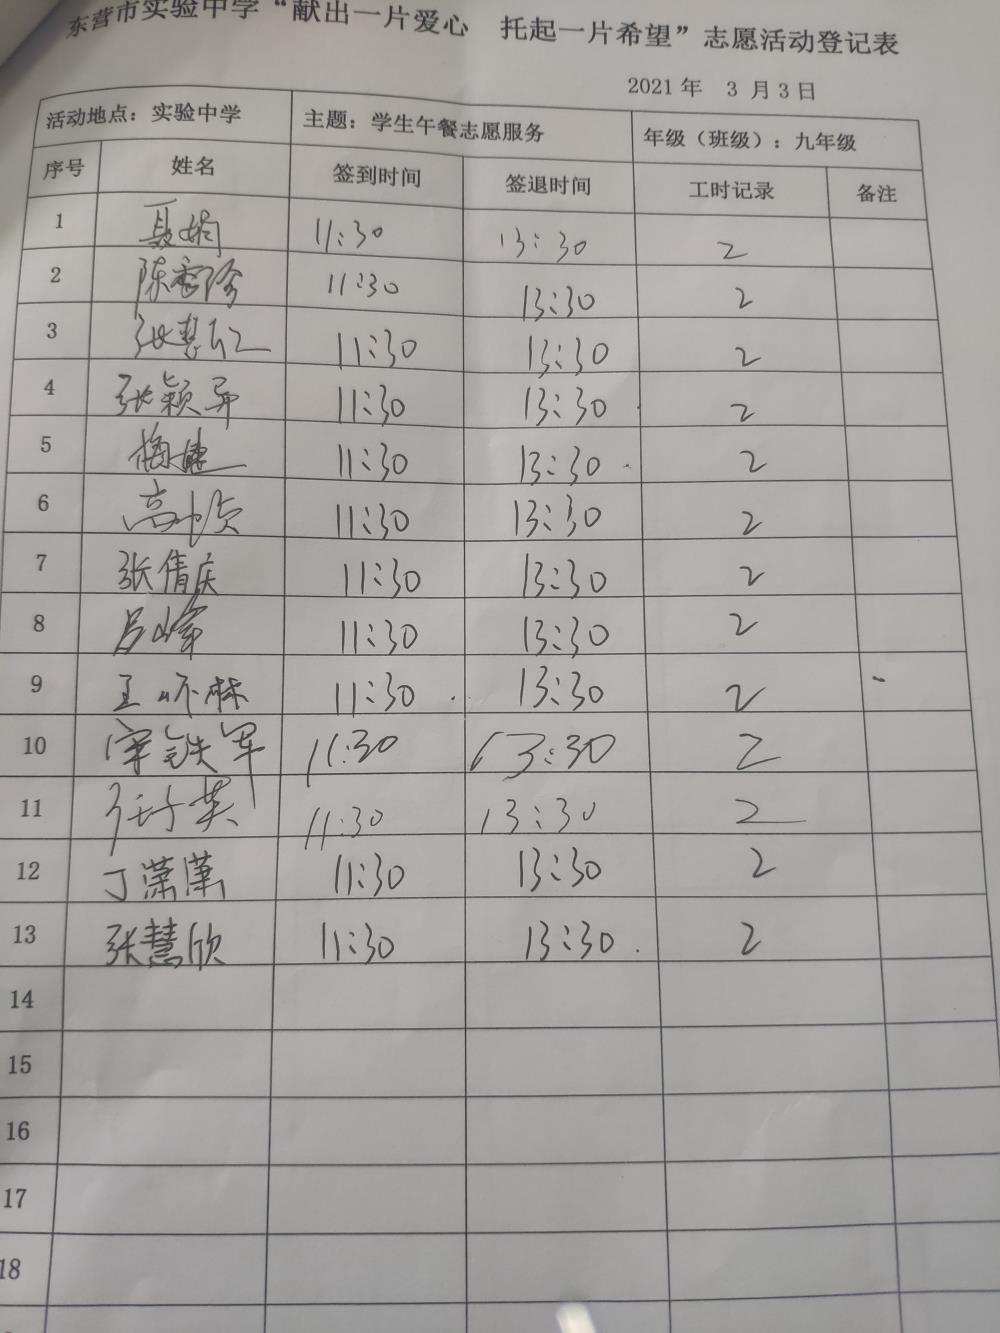 东营市实验中学“献出一片爱心 托起一片希望”志愿活动登记表
2021 年 3 月 3 日
活动地点：实验中学 主题：学生午餐志愿服务 年级（班级）：九年级
序号 姓名 签到时间 签退时间 工时记录 备注
1 聂娟 11:30 13:30 2
2 11:30 13:30 2
3 11:30 13:30 2
4 张颖异 11:30 13:30 2
5 11:30 13:30 2
6 11:30 13:30 2
7 张倩庆 11:30 13:30 2
8 11:30 13:30 2
9 11:30 13:30 2
10 宋铁军 11:30 13:30 2
11 11:30 13:30 2
12 丁潇潇 11:30 13:30 2
13 张慧欣 11:30 13:30 2
14
15
16
17
18